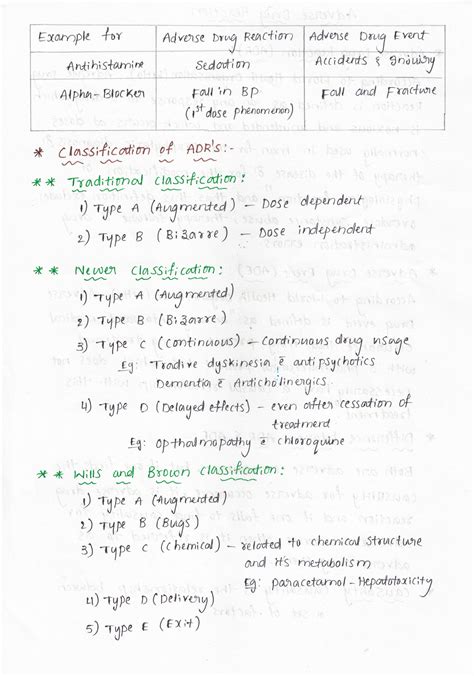 Example for | Adverse Drug Reaction | Adverse Drug Event
Antihistamine | Sedation | Accidents & Inquiry
Alpha-Blocker | Fall in BP | Fall and Fracture
(1st dose phenomenon)
* Classification of ADR's:-
** Traditional classification:
1) Type A (Augmented) – Dose dependent
2) Type B (Bizarre) – Dose independent
** Newer classification:
1) Type A (Augmented)
2) Type B (Bizarre)
3) Type C (continuous) – continuous drug usage
Eg: Tradive dyskinesia c̄ antipsychotics
Dementia c̄ Anticholinergics.
4) Type D (Delayed effects) – even after cessation of
treatment
Eg: opthalmopathy c̄ chloroquine
** Wills and Brown classification:
1) Type A (Augmented)
2) Type B (Bugs)
3) Type C (chemical) – related to chemical structure
and it's metabolism
Eg: paracetamol - Hepatotoxicity
4) Type D (Delivery)
5) Type E (Exit)